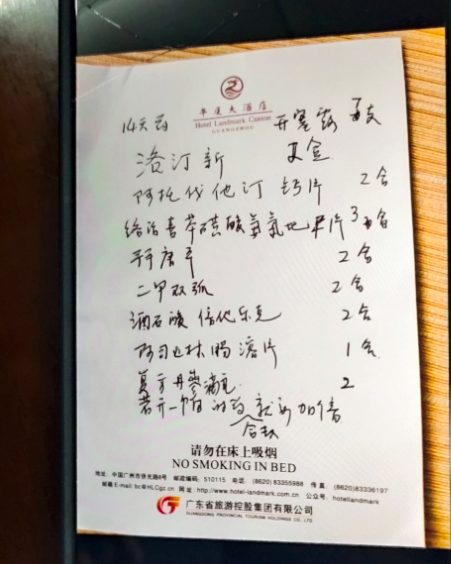 华厦大酒店
Hotel Landmark Canton
GUANGZHOU
14天药 开塞露 支
洛汀新 盒
阿托伐他汀钙片 2盒
络活喜苯磺酸氨氯地平片 3盒
唐平 2盒
二甲双弧 2盒
酒石酸倍他乐克 2盒
阿司匹林肠溶片 1盒
复方丹参滴丸 2
若开一个月的药就要加倍
请勿在床上吸烟
NO SMOKING IN BED
地址:中国广州市侨光路8号 邮政编码:510115 电话:(8620)83355988 传真:(8620)83336197
邮箱E-mail:bc@HLCgz.cn 网址:http://www.hotel-landmark.com.cn 公众号:hotellandmark
广东省旅游控股集团有限公司
GUANGDONG PROVINCIAL TOURISM HOLDINGS CO. LTD